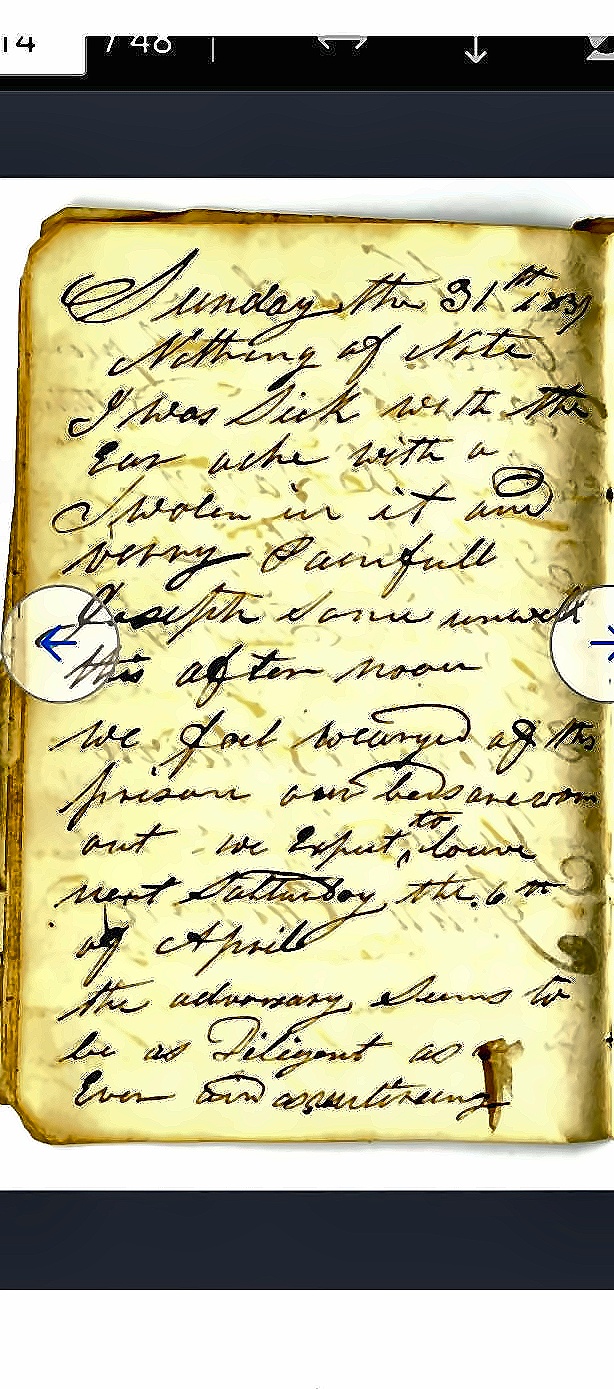 14 / 48
Sunday the 31th 1839
Nothing of Note
I was Sick with the
Ear ache with a
Swolen in it and
verry Painfull
Joseph Some unwell
this after noon
we feel wearyed of this
prison our beds are worn
out we Expect to leave
next Satturday the 6th
of April
the adversary Seems to
be as Diligent as
Ever and